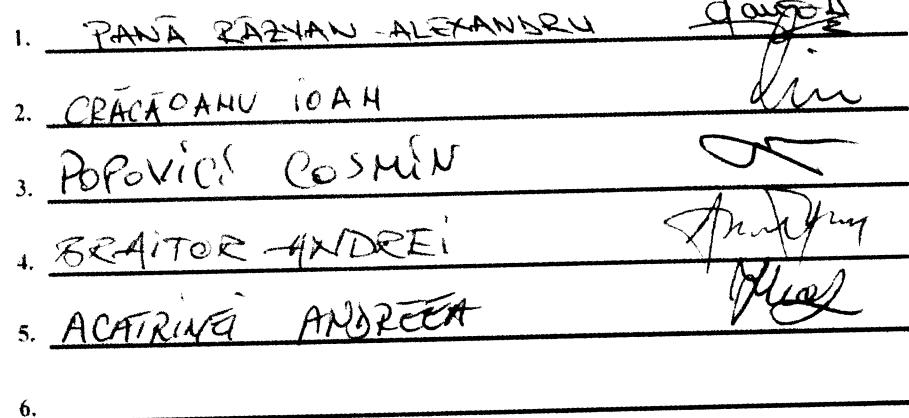 1. PANĂ RĂZVAN ALEXANDRU
2. CRĂCĂOANU IOAN
3. POPOVICI COSMIN
4. BRAITOR ANDREI
5. ACATRINEI ANDREEA
6.